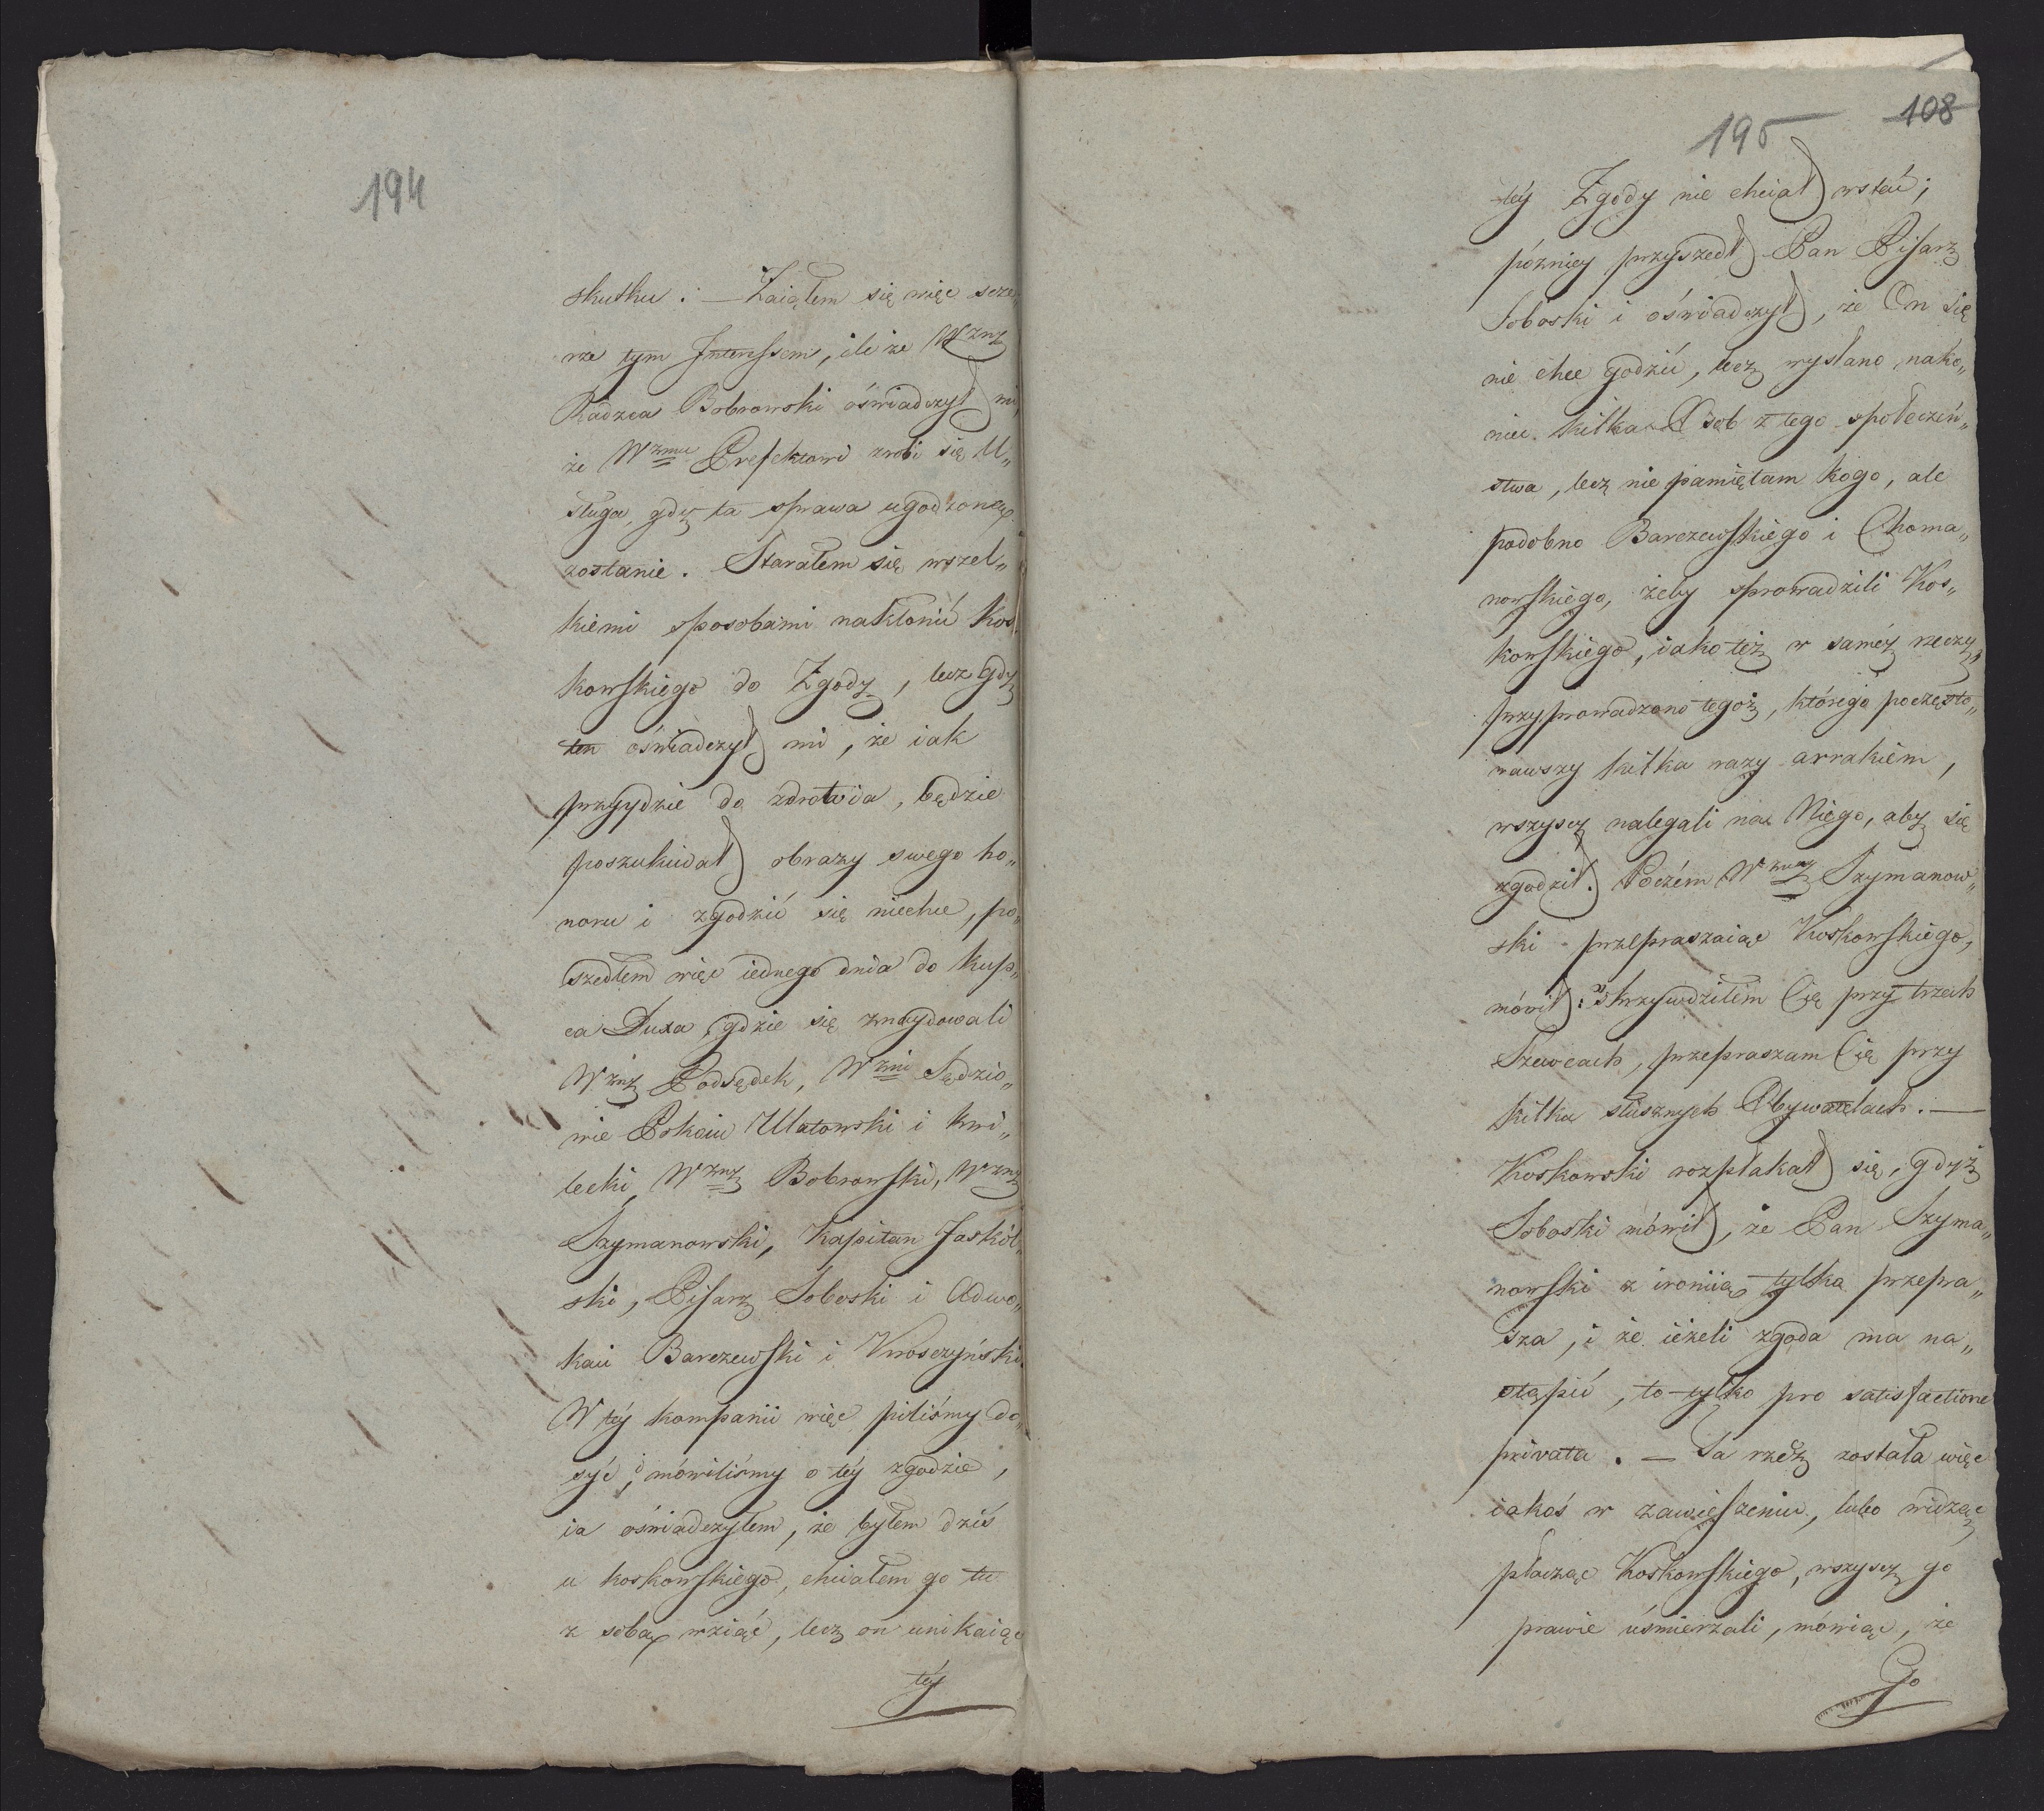 194
skutku. — Zaiąłem się więc szcze„
rze tym Interessem, ile że Wzny
Radzca Bobrowski oświadczył mi,
że Wzmu Prefektowi zrobi się U„
sługa, gdy ta sprawa ugodzoną
zostanie. Starałem się wszel„
kiemi sposobami nakłonić Kos„
kowskiego do Zgody, lecz gdy
ten oświadczył mi, że iak
przyydzie do zdrowia, będzie
poszukiwał obrazy swego ho„
noru i zgodzić się niechce, po„
szedłem więc iednego dnia do kup„
ca Duxa, gdzie się znaydowali
Wzny Podsędek, Wzni Sędzio„
wie Pokoiu Ulatowski i Kwi„
lecki, Wzny Bobrowski, Wzny
Szymanowski, Kapitan Jaskól„
ski, Pisarz Soboski i Adwo„
kaci Barczewski i Kroszczyński.
W téy kompanii więc piliśmy do„
syć i mówiliśmy o téy zgodzie,
ia oświadczyłem, że byłem dziś
u Koskowskiego, chciałem go tu
z sobą wziąć, lecz on unikaiąc
téy
108
195
téy Zgody nie chciał wstać;
pózniey przyszedł Pan Pisarz
Soboski i oświadczył, że On się
nie chce godzić, lecz wysłano nako„
niec kilka Osob z tego społeczeń„
stwa, lecz nie pamiętam kogo, ale
podobno Barczewskiego i Choma„
nowskiego, żeby sprowadzili Kos„
kowskiego, iako też w saméy rzeczy
przyprowadzono tegoż, którego poczęsto„
wawszy kilka razy arrakiem,
wszyscy nalegali na Niego, aby się
zgodził. Poczém Wzny Szymanow„
ski przepraszaiąc Koskowskiego,
mówił: „Skrzywdziłem Cię przy trzech
Szewcach, przepraszam Cię przy
kilku słusznych Obywatelach. —
Koskowski rozpłakał się, gdyż
Soboski mówił, że Pan Szyma„
nowski z ironiią tylko przepra„
sza, i że ieżeli zgoda ma na„
stąpić, to tylko pro satisfactione
privata. — Ta rzecz została więc
iakoś w zawieszeniu, lubo widząc
płacząc Koskowskiego, wszyscy go
prawie uśmierzali, mówiąc, że
Go